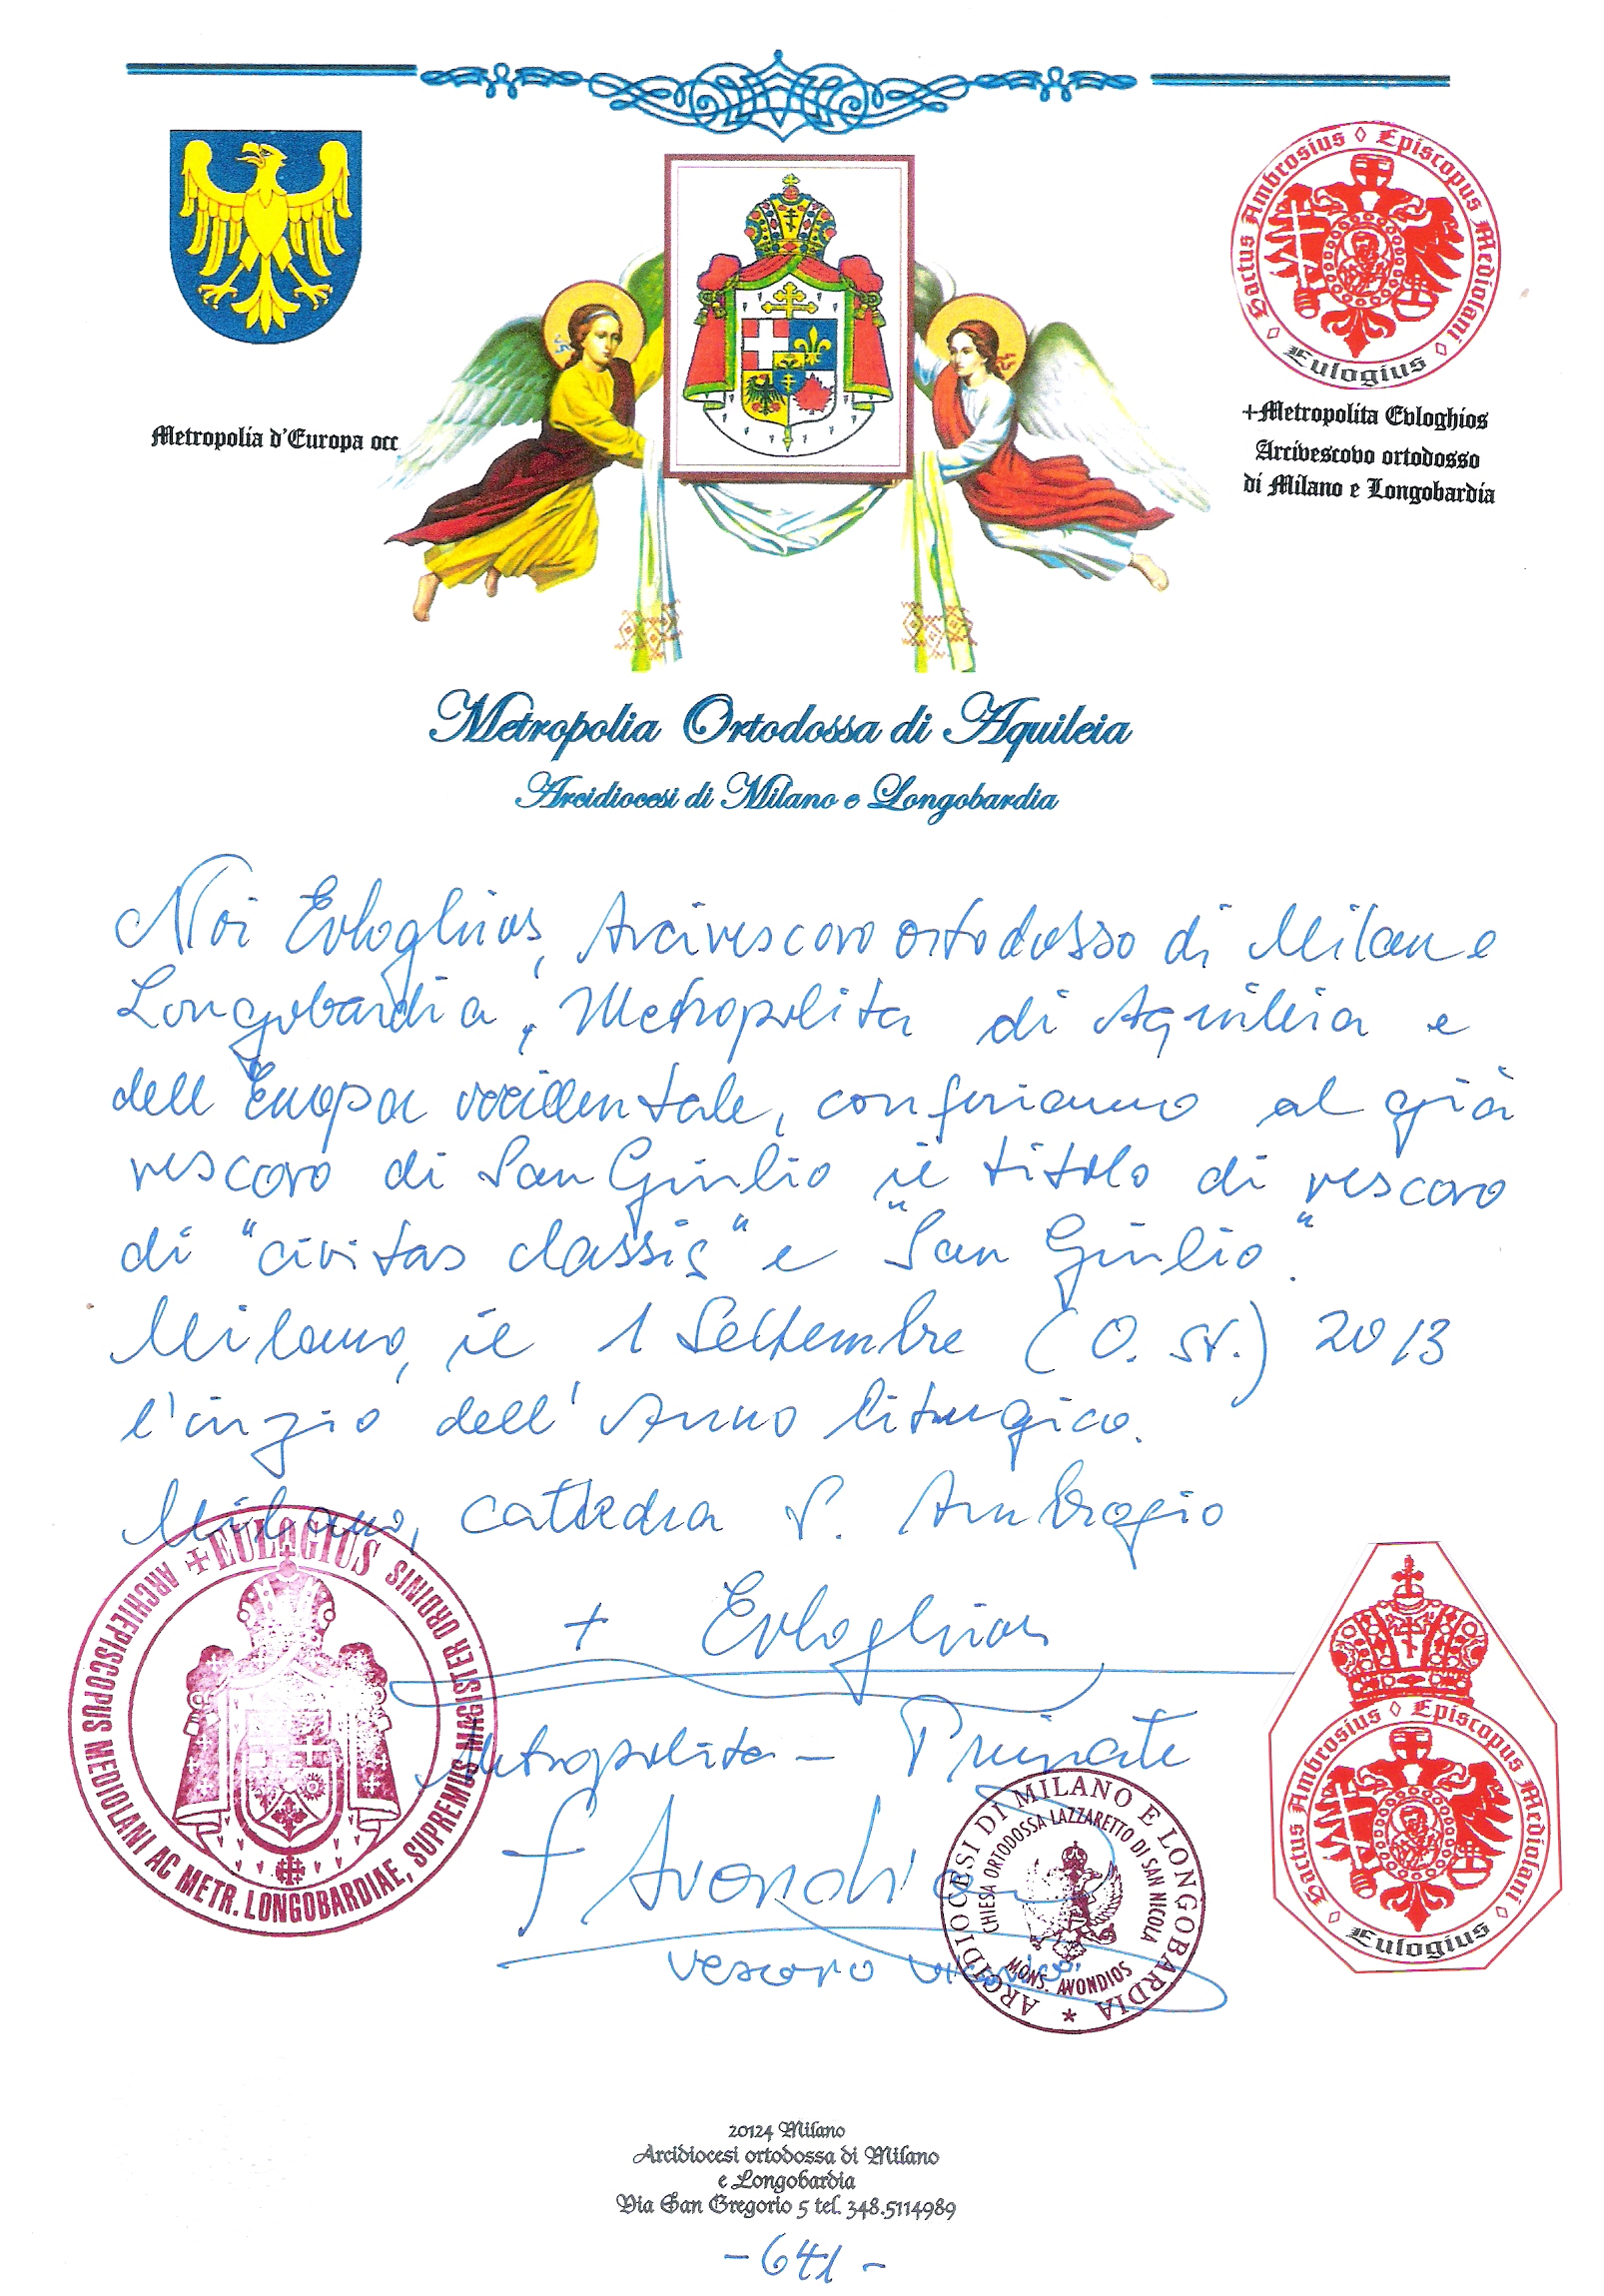 Metropolia d'Europa occ
Sactus Ambrosius ◊ Episcopus Mediolani ◊
Eulogius
+Metropolita Evloghios
Arcivescovo ortodosso
di Milano e Longobardia
Metropolia Ortodossa di Aquileia
Arcidiocesi di Milano e Longobardia
Noi Evloghios, Arcivescovo ortodosso di Milan e
Longobardia, Metropolita di Aquileia e
dell Europa occidentale, conferiamo al già
vescovo di San Giulio il titolo di vescovo
di "civitas classis" e "San Giulio".
Milano, il 1 Settembre (O. st.) 2013
l'inzio dell'Anno liturgico.
Milano, cattedra S. Ambrogio
+ Evloghios
Metropolita - Primate
+EULOGIUS
ARCHIEPISCOPUS MEDIOLANI AC METR. LONGOBARDIAE, SUPREMUS MAGISTER ORDINIS
+ Avondios
vescovo
ARCIDIOCESI DI MILANO E LONGOBARDIA *
CHIESA ORTODOSSA LAZZARETTO DI SAN NICOLA
MONS. AVONDIOS
Sactus Ambrosius ◊ Episcopus Mediolani ◊
Eulogius
20124 Milano
Arcidiocesi ortodossa di Milano
e Longobardia
Via San Gregorio 5 tel. 348.5114989
- 641 -